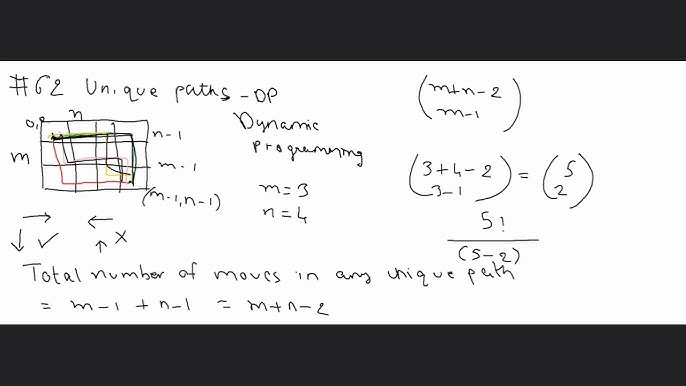 #62 Unique paths - DP
n
0,0
m
n-1
m-1
(m-1,n-1)
Dynamic
Programming
m=3
n=4
(m+n-2
m-1)
(3+4-2
3-1) = (5
2)
5!
(5-2)
✓
X
Total number of moves in any unique path
= m-1 + n-1 = m+n-2